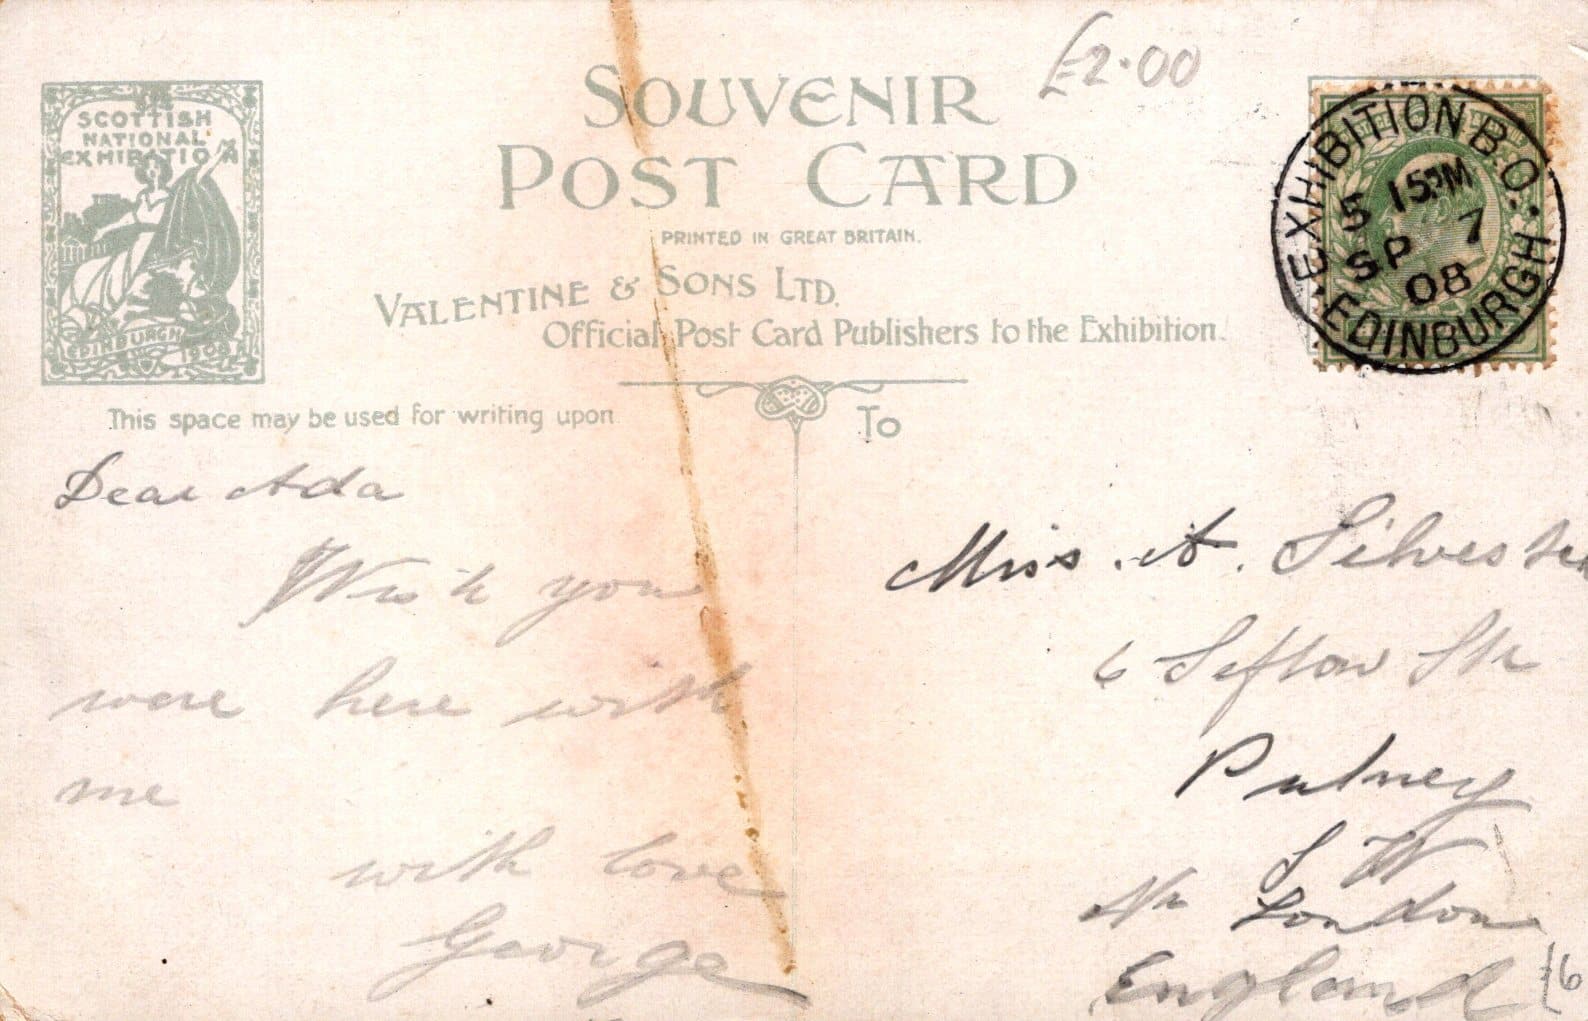 £2.00
SOUVENIR
POST CARD
PRINTED IN GREAT BRITAIN.
VALENTINE & SONS LTD.
Official Post Card Publishers to the Exhibition.
SCOTTISH
NATIONAL
EXHIBITION
EDINBURGH
1908
EXHIBITION B.O.
5 15PM
SP 7
08
EDINBURGH
This space may be used for writing upon
To
Dear Ada
Wish you
were here with
me
with love
George
Miss. A. Silvester
6 Sefton Str
Putney
S W
Nr London
England